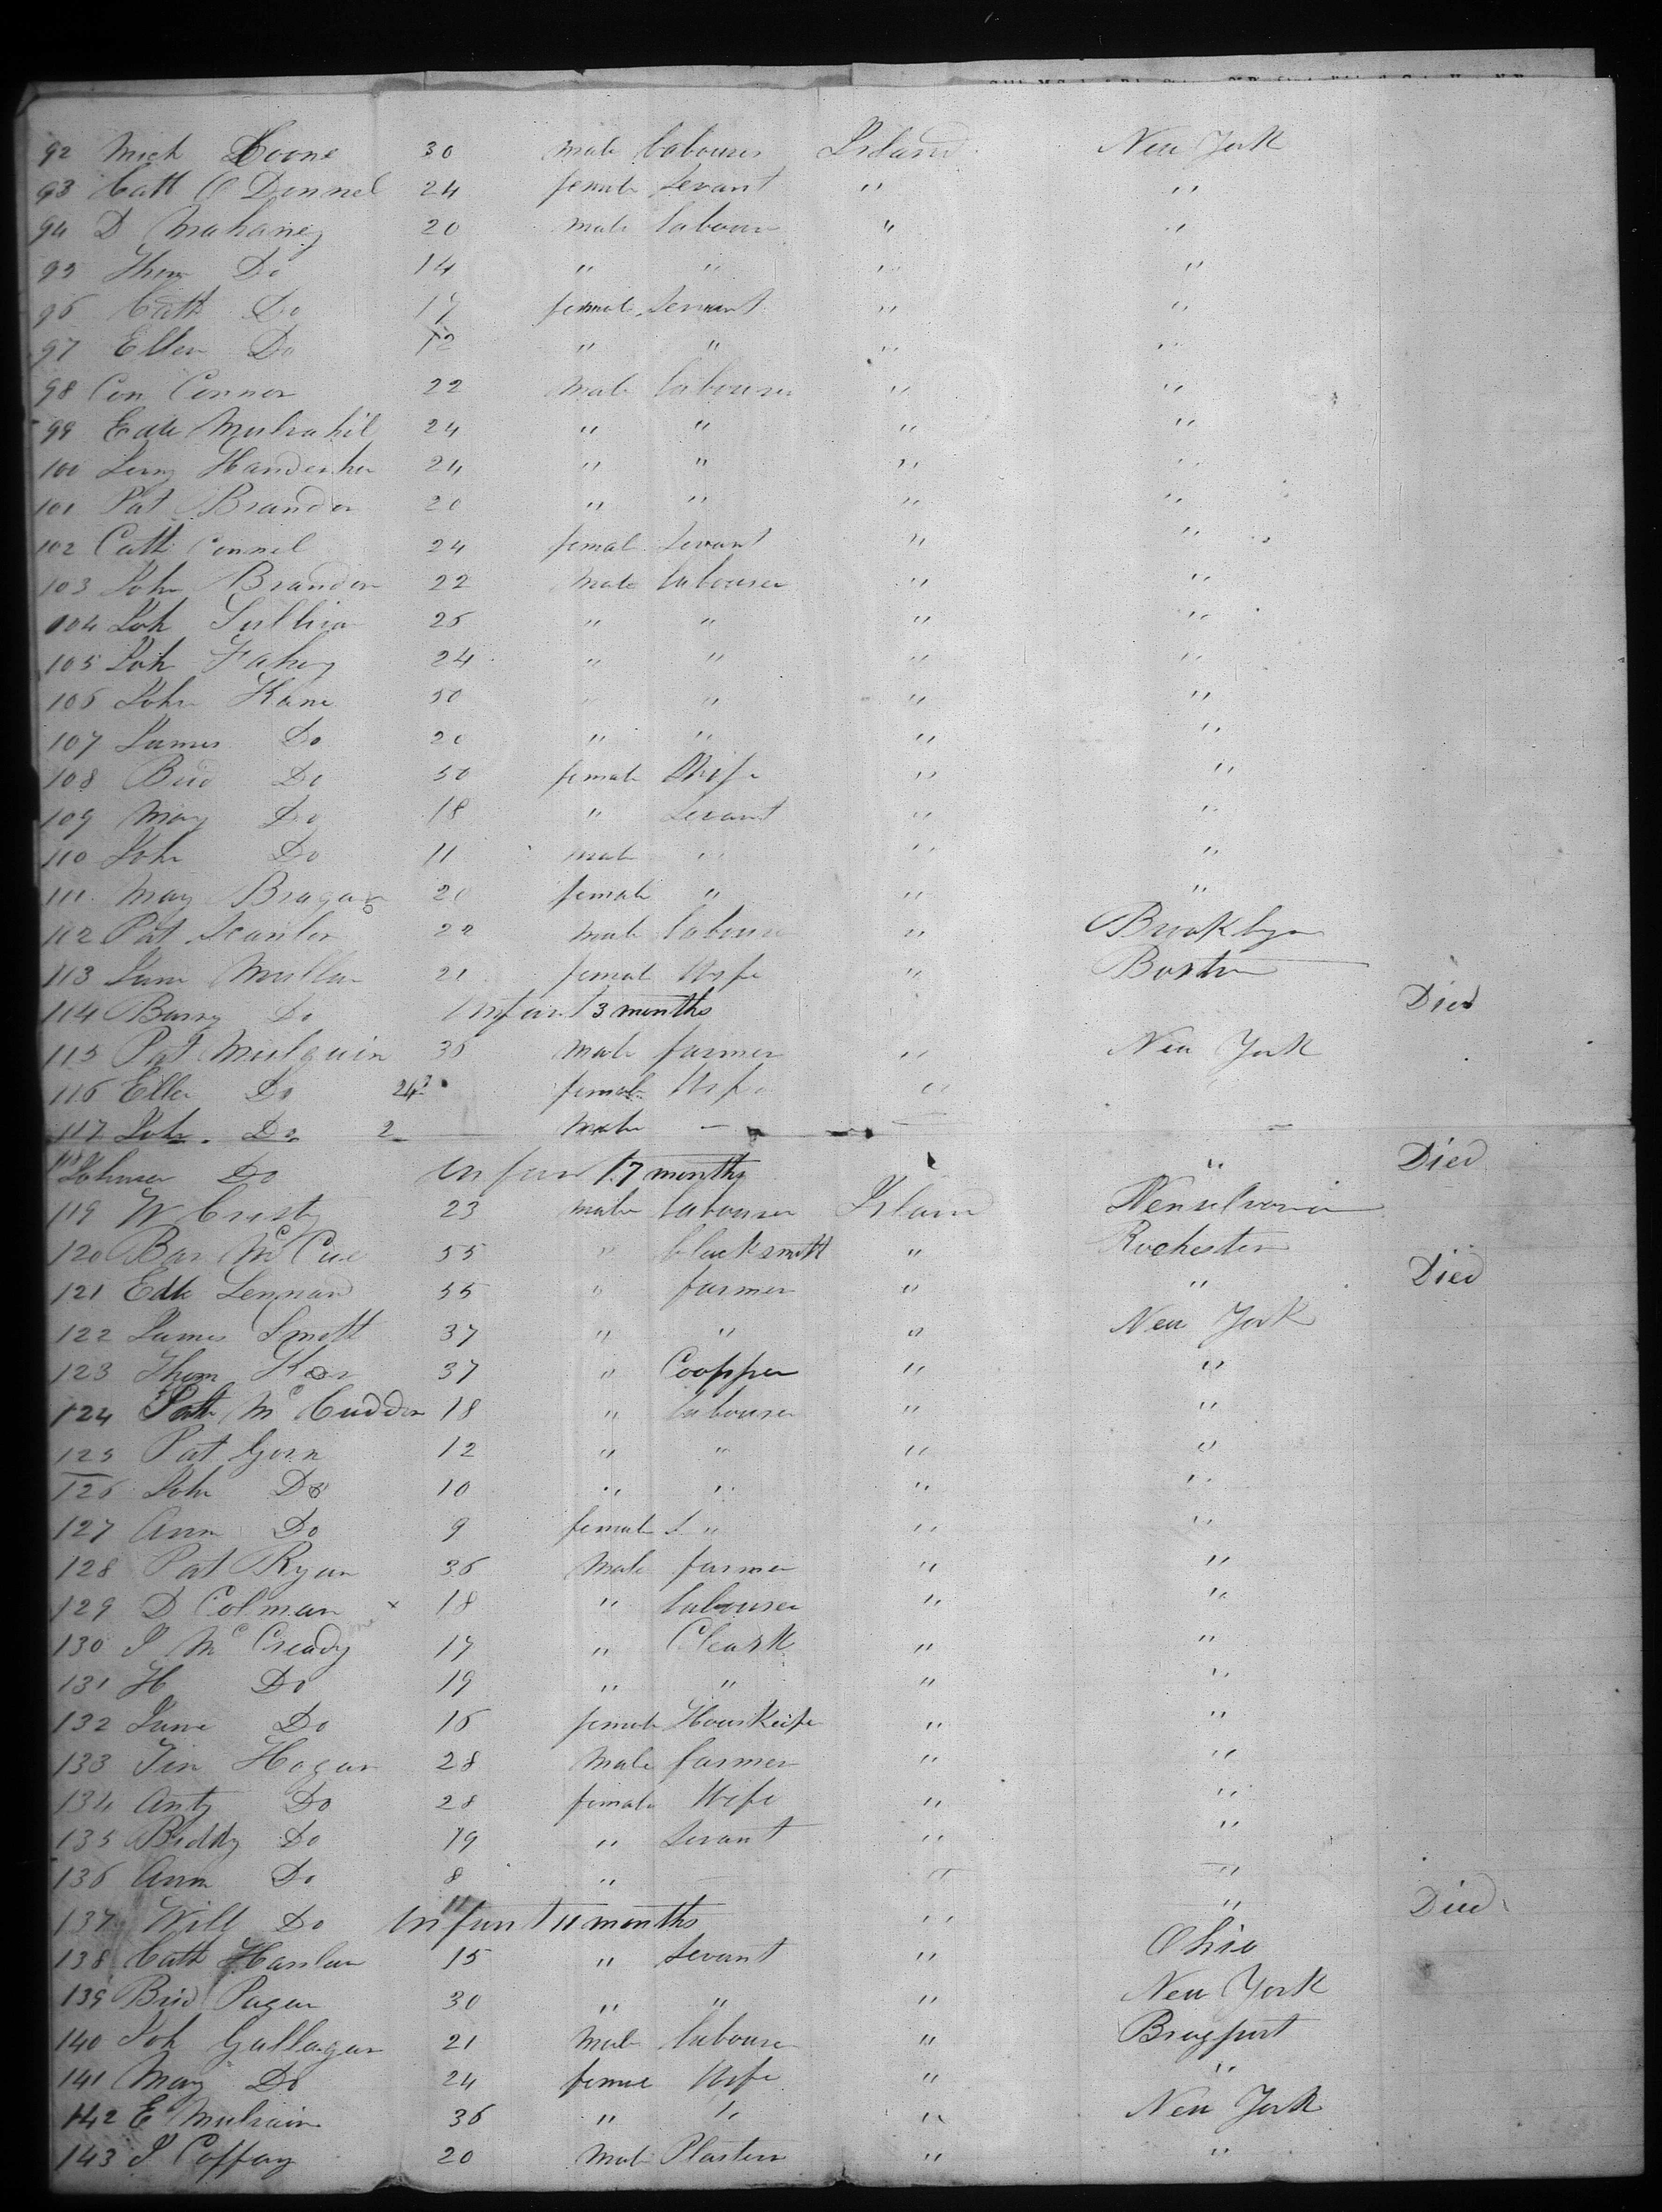 92 Mich Doone 30 male labourer Irland New York
93 Catt O Donnel 24 female Servant " "
94 D Mahaney 20 male labour " "
95 Thom Do 14 " " " "
96 Cath Do 17 female Servant " "
97 Ellen Do 12 " " " "
98 Con Connor 22 Male labourer " "
99 Edk Mulrahil 24 " " " "
100 24 " " " "
101 Pat Brandon 20 " " " "
102 Cath Connel 24 femal Servant " "
103 John Brandon 22 Male labourer " "
104 Joh Sullivan 25 " " " "
105 Joh Fahey 24 " " " "
106 John Kane 50 " " " "
107 James Do 20 " " " "
108 Brid Do 50 female Wife " "
109 Mary Do 18 " Servant " "
110 John Do 11 male " " "
111 Mary Bragan 20 female " " "
112 Pat Scanlon 22 Male labourer " Brooklyn
113 Jane Mullan 21 femal Wife " Boston
114 Barny Do Infant 3 months Died
115 Pat Mulquin 36 Male farmer " New York
116 Ellen Do 24 female Wife "
117 John Do 2 Male —
118 Do Infant 7 months " Died
119 W Cristy 23 male labourer Irland Pensilvania
120 Bar McCue 55 " blacksmitt " Rochester
121 Edk Lennard 55 " farmer " " Died
122 James Smitt 37 " " " New York
123 Thom Kear 37 " Coopper " "
124 Patk McCudden 18 " labourer " "
125 Pat Gorn 12 " " " "
126 John Do 10 " " " "
127 Ann Do 9 female S " " "
128 Pat Ryan 36 Male farmer " "
129 D Colman × 18 " labourer " "
130 J McCready 17 " Cleark " "
131 H Do 19 " " " "
132 Jane Do 16 female HousKeipe " "
133 Tim Hogan 28 Male farmer " "
134 Anty Do 28 female Wife " "
135 Biddy Do 19 " Servant " "
136 Ann Do 8 " — " "
137 Will Do Infant 11 months " " Died
138 Cath Hanlan 15 " Servant " Ohio
139 Brid Pagan 30 " " " New York
140 Joh Gallagan 21 Male labourer " Bragport
141 Mary Do 24 femae Wife " "
142 E Mulrain 36 " " " New York
143 J Coffay 20 Male Plasterer " "